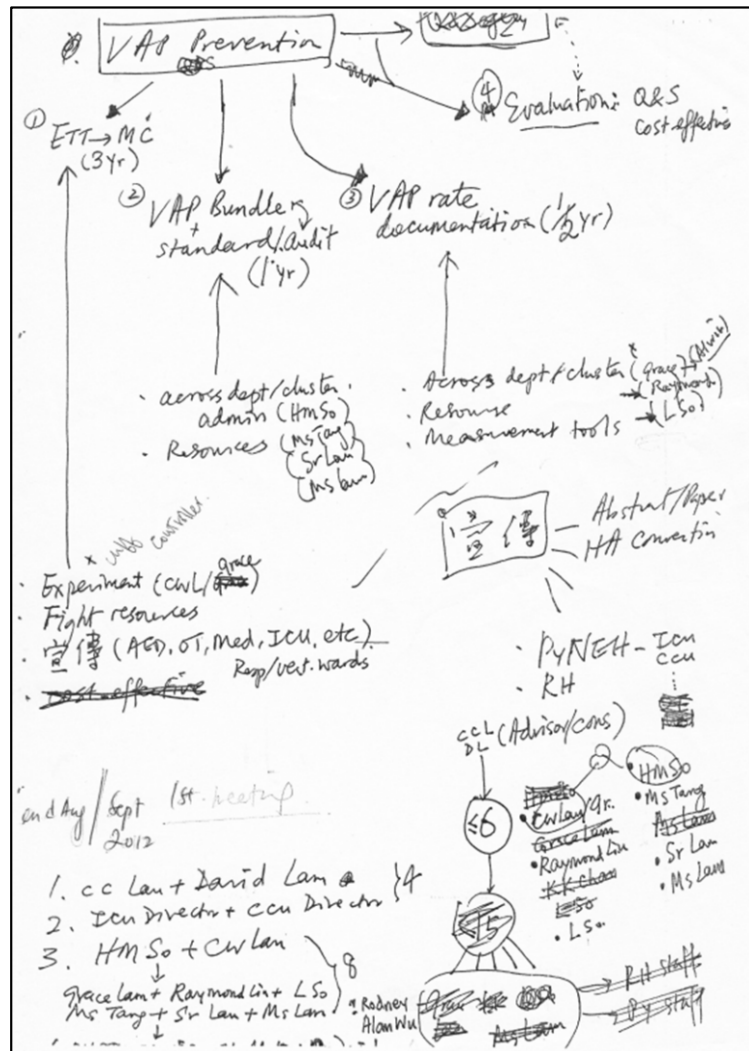 VAP Prevention
④ Evaluation: Q&S
cost effective
① ETT → MC
(3yr)
② VAP Bundle
+
standard/Audit
(1 yr)
③ VAP rate
documentation (1/2 yr)
· across dept/cluster
admin (HMSo)
· Resources (Ms Tang)
(Sr Lam)
(Ms Lam)
· Across dept/cluster (grace) + (Alwin)
· Resource → (Raymond)
· Measurement tools → (LSo)
宣傳
Abstract/Paper
HA Convention
cuff controller
· Experiment (CWL/grace)
· Fight resources
· 宣傳 (AED, OT, Med, ICU, etc)
Resp/vent. wards
· cost-effective
· PYNEH - ICU
CCU
· RH
CCL
DL (Advisor/cons)
≤6
HMSo
· CWLau/Gr.
Grace Lam
· Raymond Liu
KK Chan
LSo
· LSo
· HMSo
· Ms Tang
Ms Lam
· Sr Lam
· Ms Lam
≤15
RH staff
PY staff
Ms Lam
· Rodney
Alan Wu
end Aug / Sept 1st. meeting
2012
1. CC Lau + David Lam
2. ICU Director + CCU Director } 4
3. HMSo + CWLau
Grace Lam + Raymond Liu + LSo
Ms Tang + Sr Lam + Ms Lam } 8